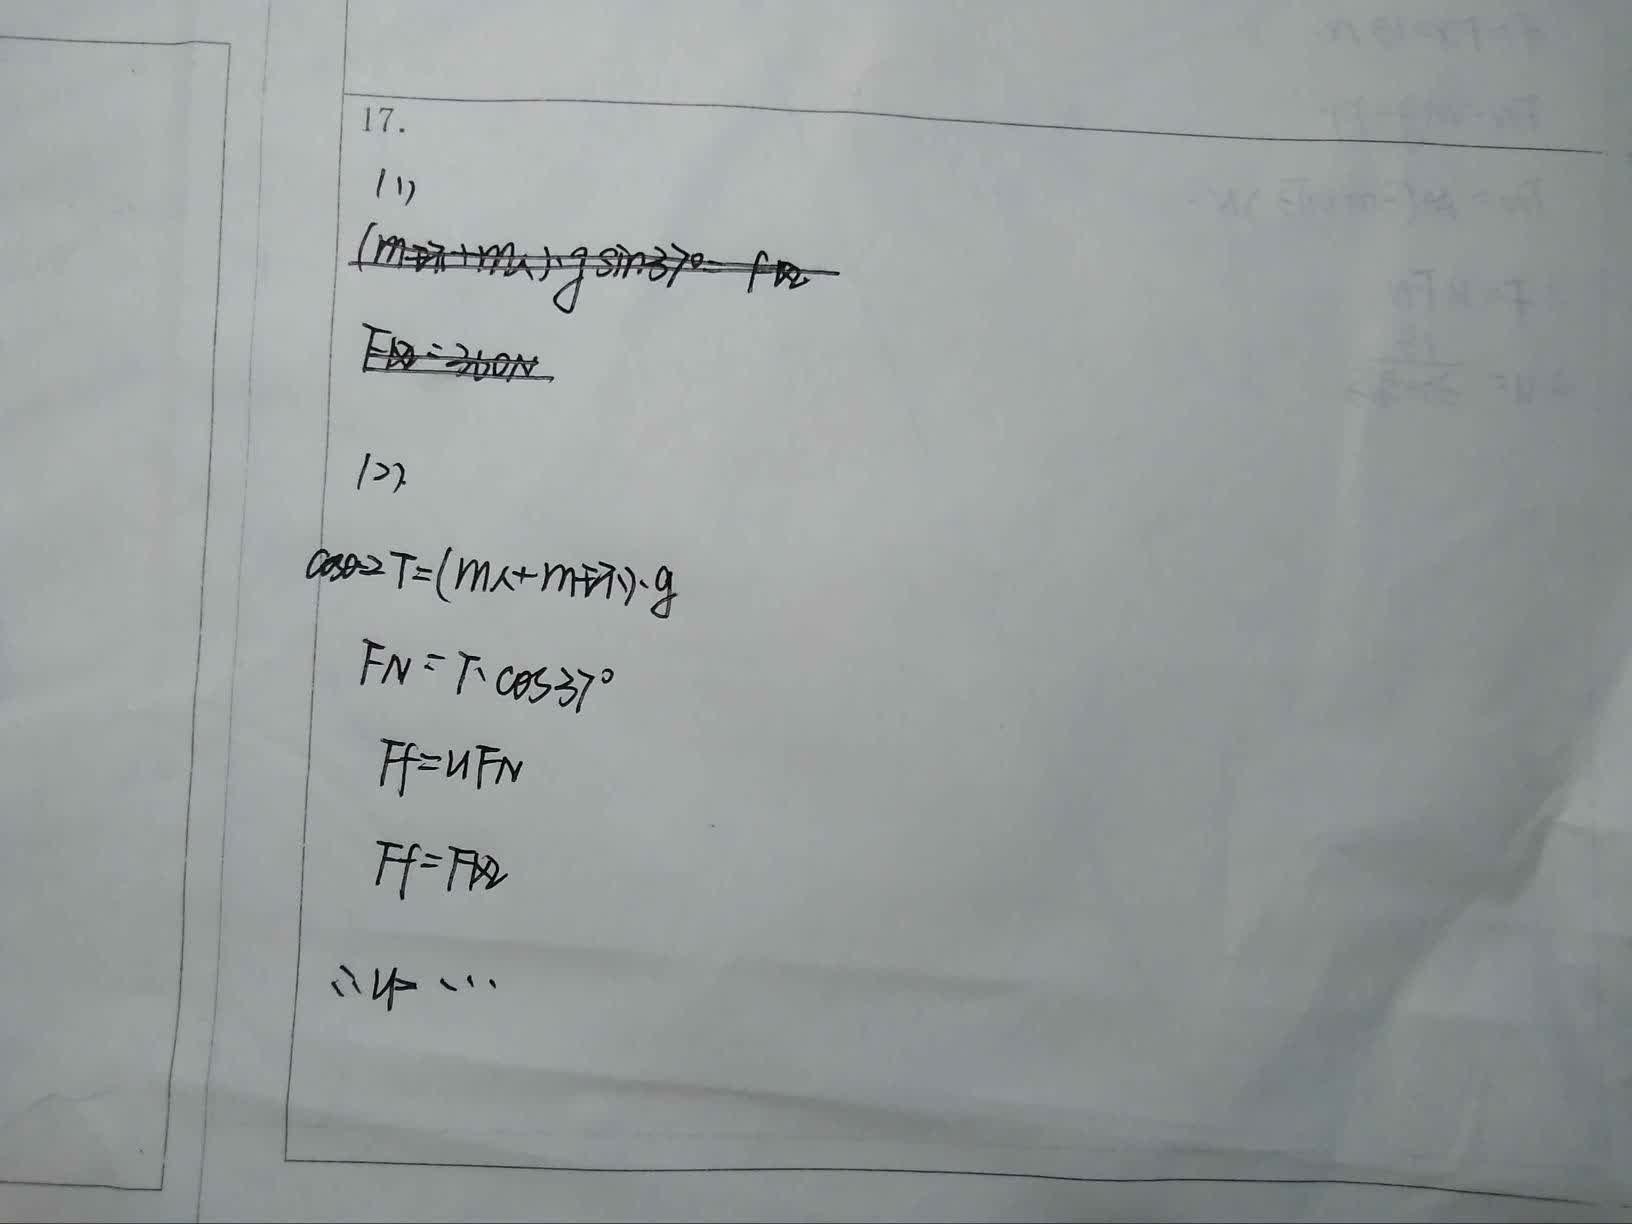 17.
(1)
(m环+m人)·g sin37°= f拉
F拉=300N
(2)
cosθ·2T=(m人+m环)·g
FN=T·cos37°
Ff=uFN
Ff=F拉
∴u= ···